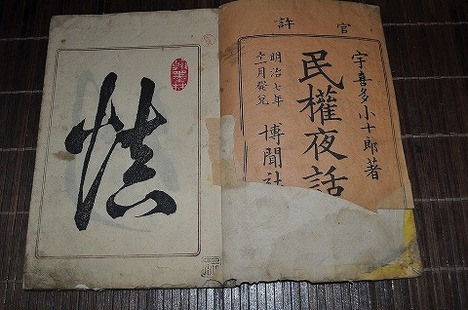 官許
宇喜多小十郎著
民權夜話
明治七年
月發兌
博聞社
慎